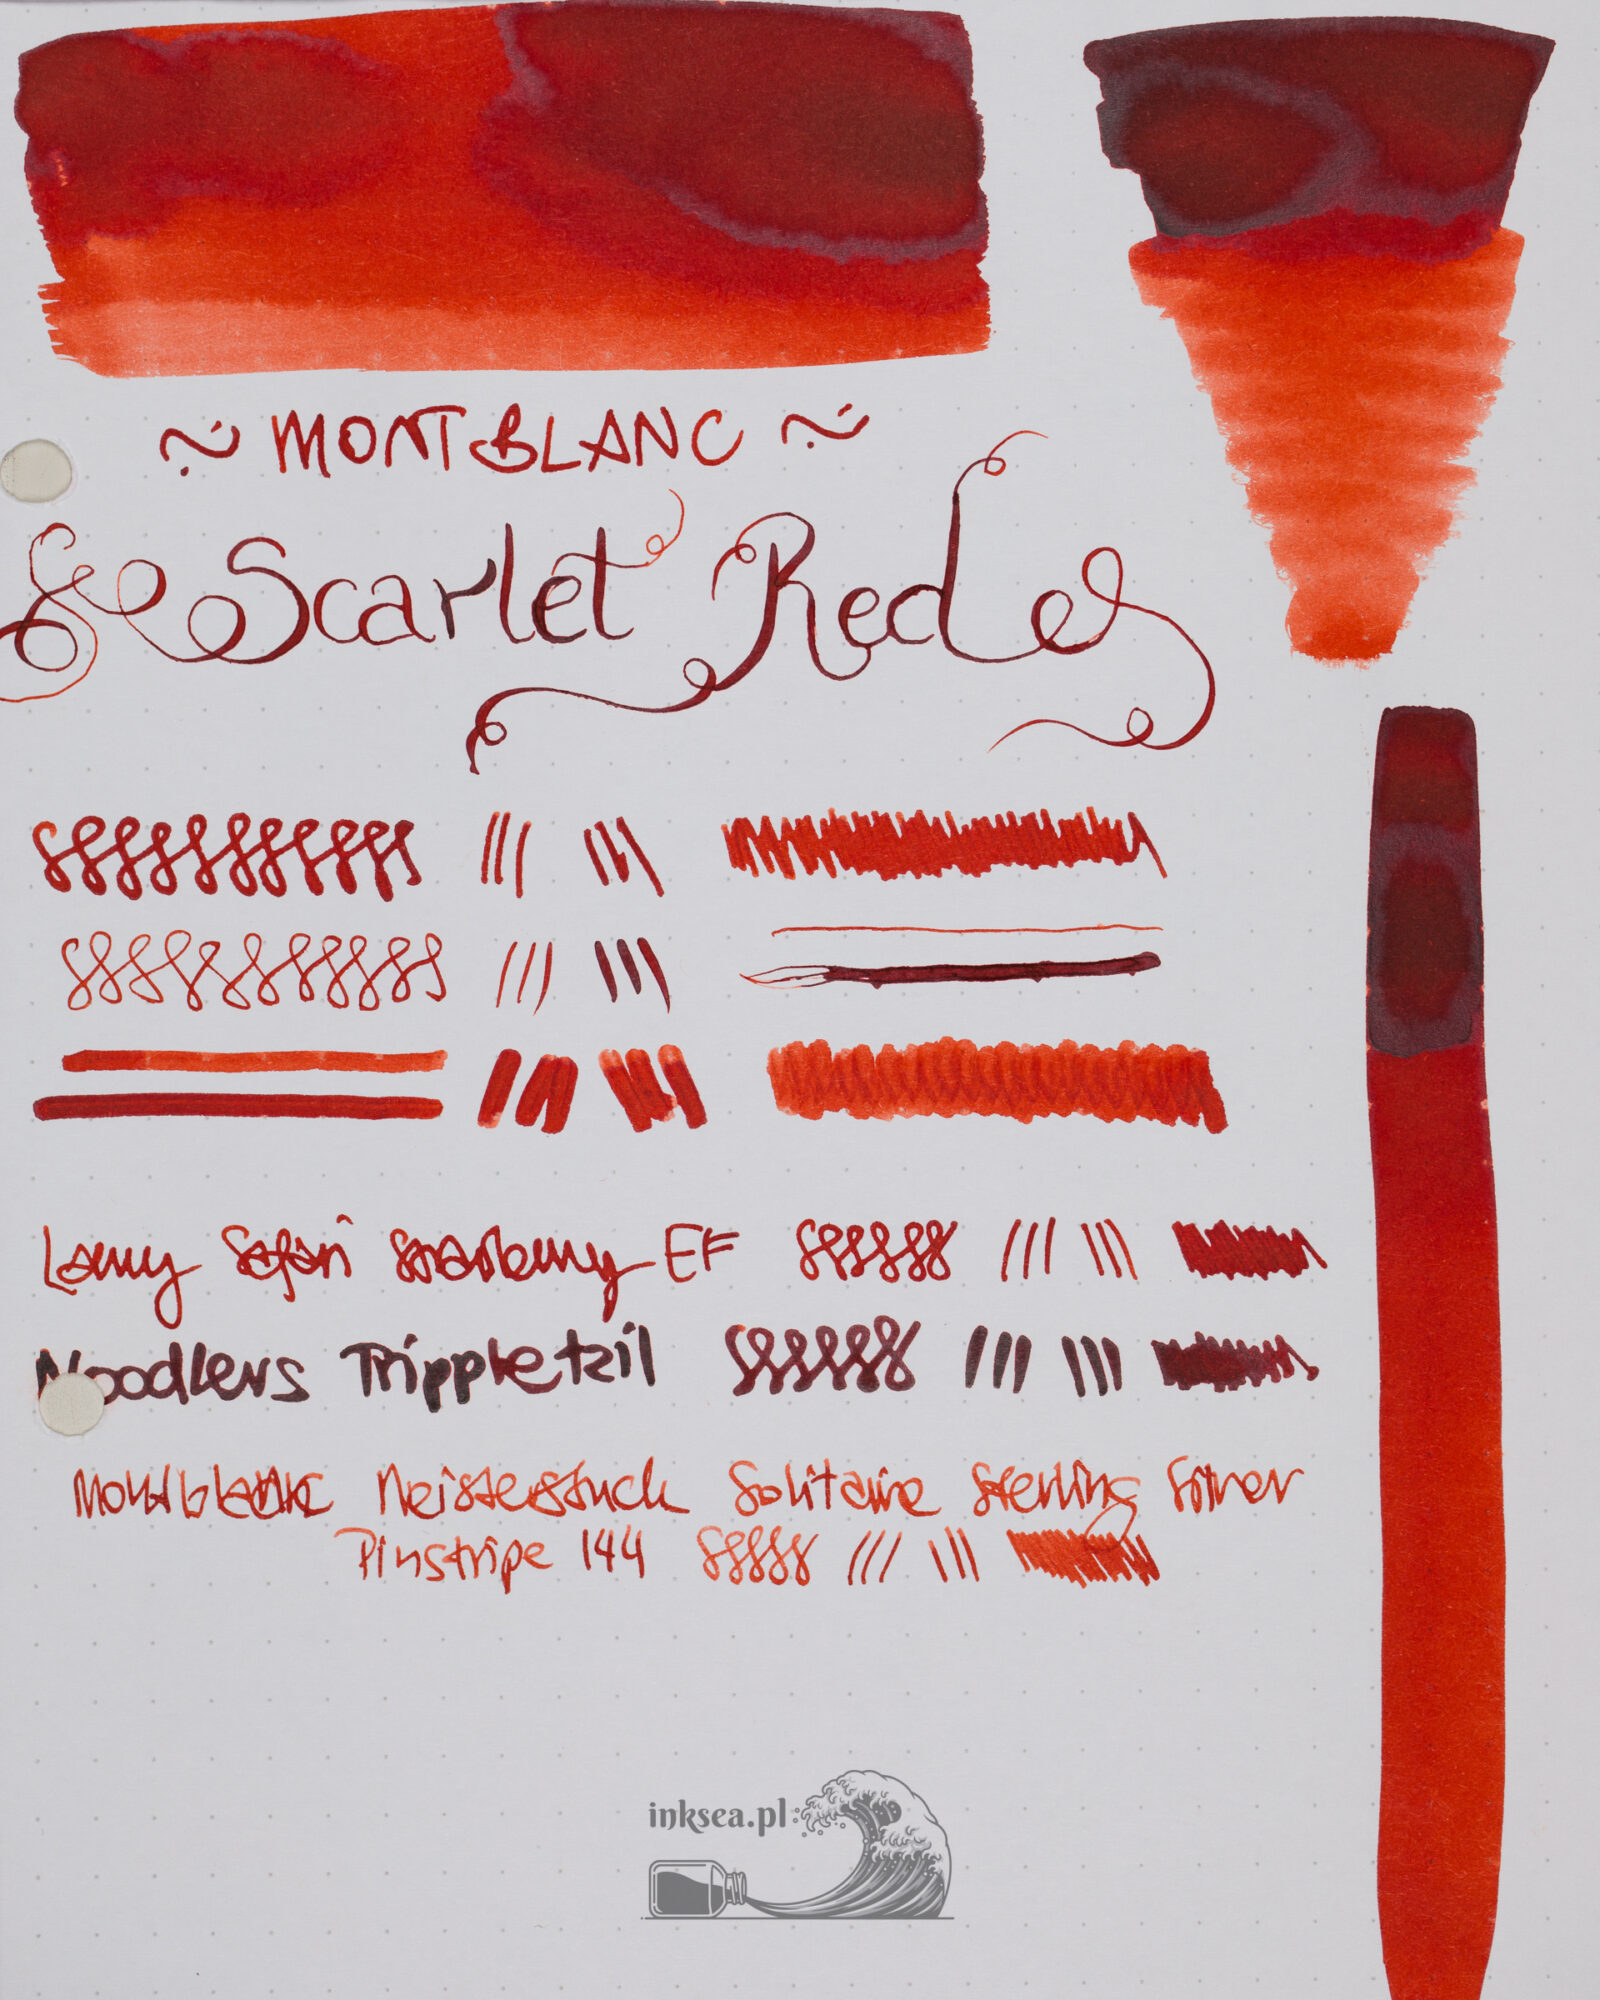 ~ MONTBLANC ~
Scarlet Red
Lamy Safari stalówny EF
Noodlers Trippletail
Montblanc Meisterstuck Solitaire Sterling Silver
Pinstripe 144
inksea.pl